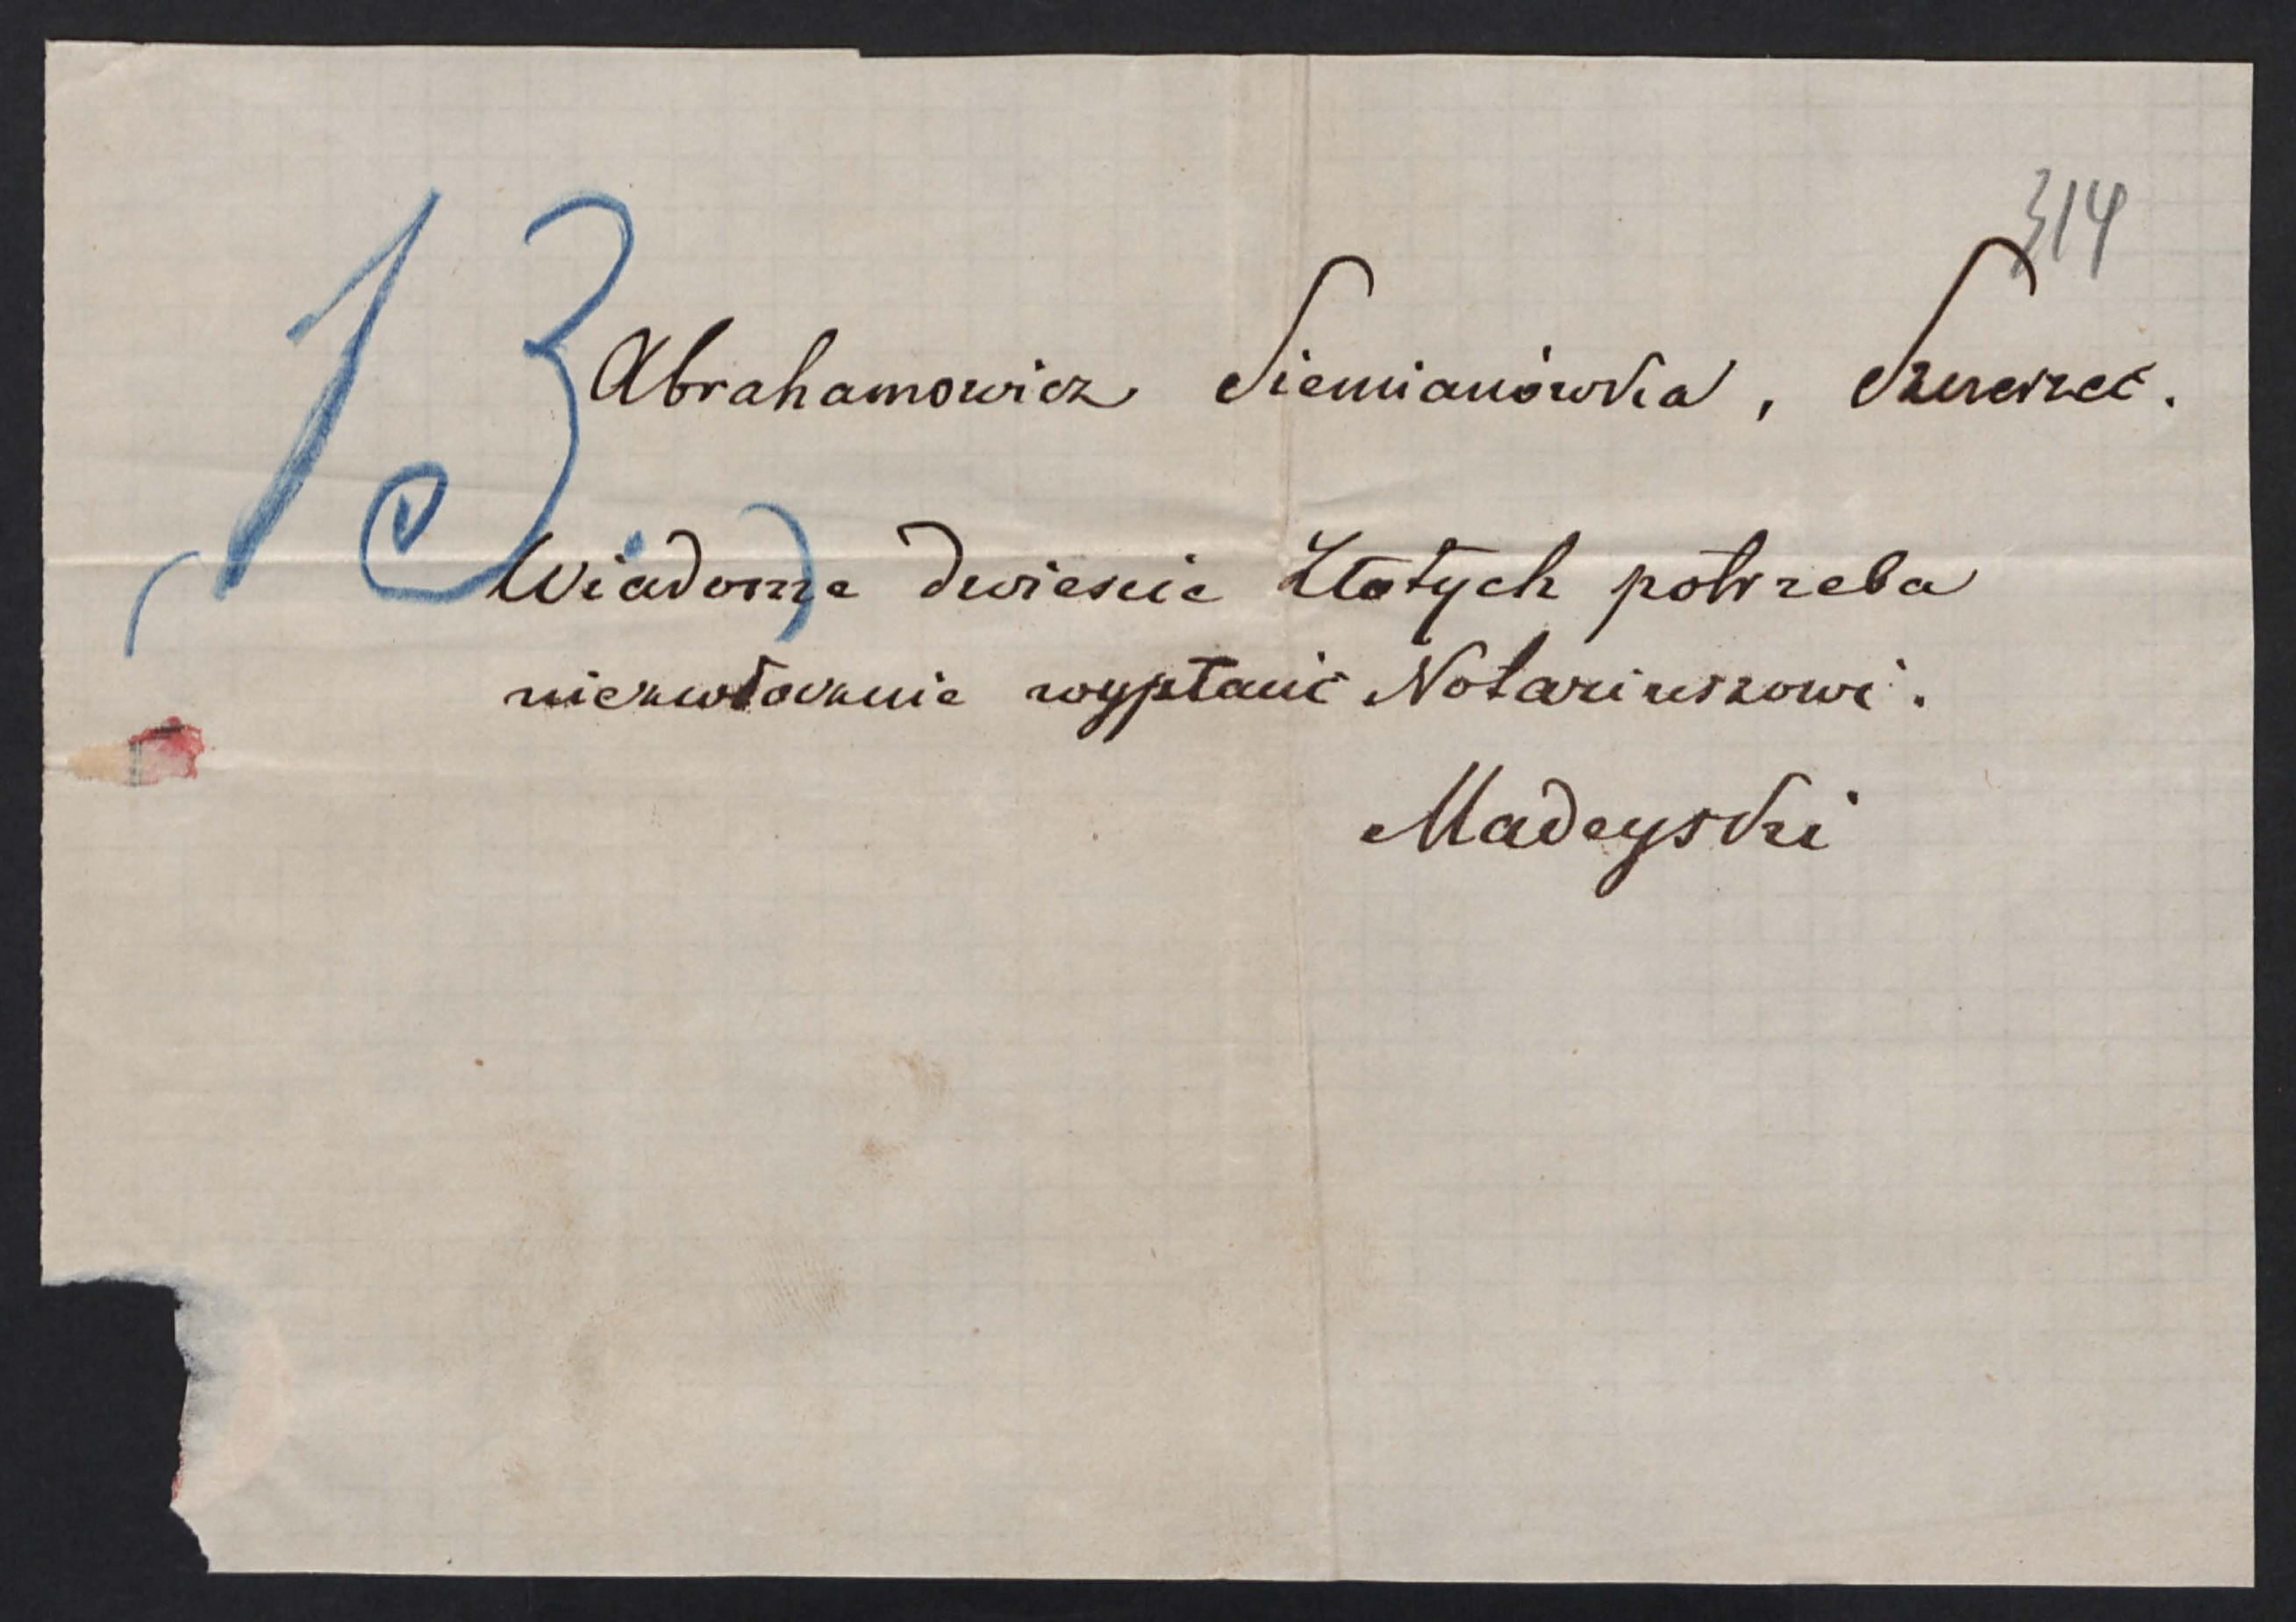 314
13
Abrahamowicz Siemianówka, Szczerzec.
Wiadome dwieście złotych potrzeba
niezwłocznie wypłacić Notariuszowi.
Madeyski